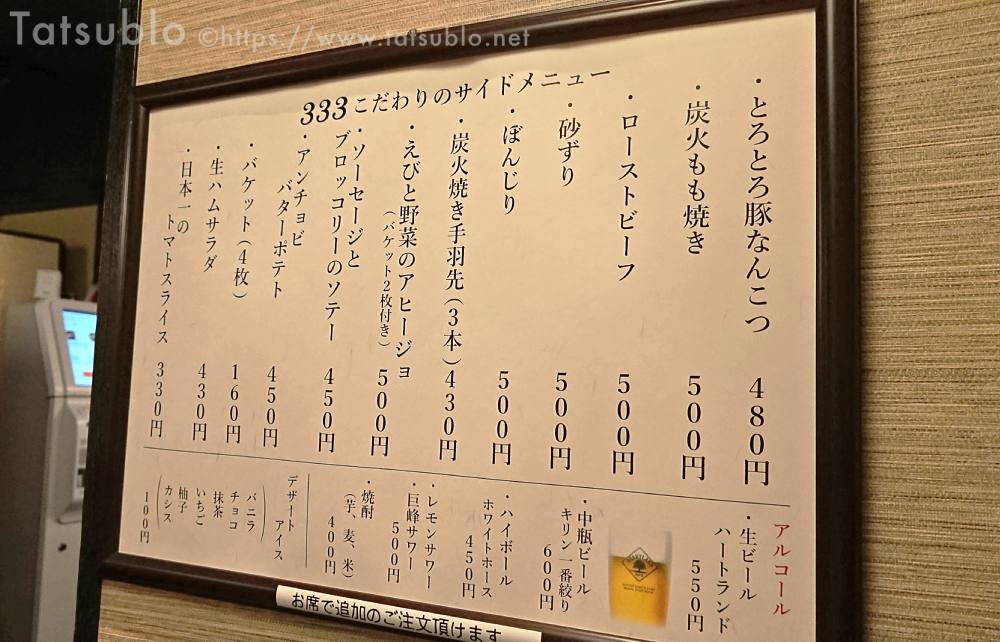 Tatsublo ©https://www.tatsublo.net
333こだわりのサイドメニュー
・とろとろ豚なんこつ 480円
・炭火もも焼き 500円
・ローストビーフ 500円
・砂ずり 500円
・ぼんじり 500円
・炭火焼き手羽先(3本)430円
・えびと野菜のアヒージョ
(バケット2枚付き) 500円
・ソーセージと
ブロッコリーのソテー 450円
・アンチョビ
バターポテト 450円
・バケット(4枚) 160円
・生ハムサラダ 430円
・日本一の
トマトスライス 330円
アルコール
・生ビール
ハートランド
550円
・中瓶ビール
キリン一番絞り
600円
・ハイボール
ホワイトホース
450円
・レモンサワー
・巨峰サワー
500円
・焼酎
(芋、麦、米)
400円
デザート
アイス
(バニラ
チョコ
抹茶
いちご
柚子
カシス)
100円
お席で追加のご注文頂けます